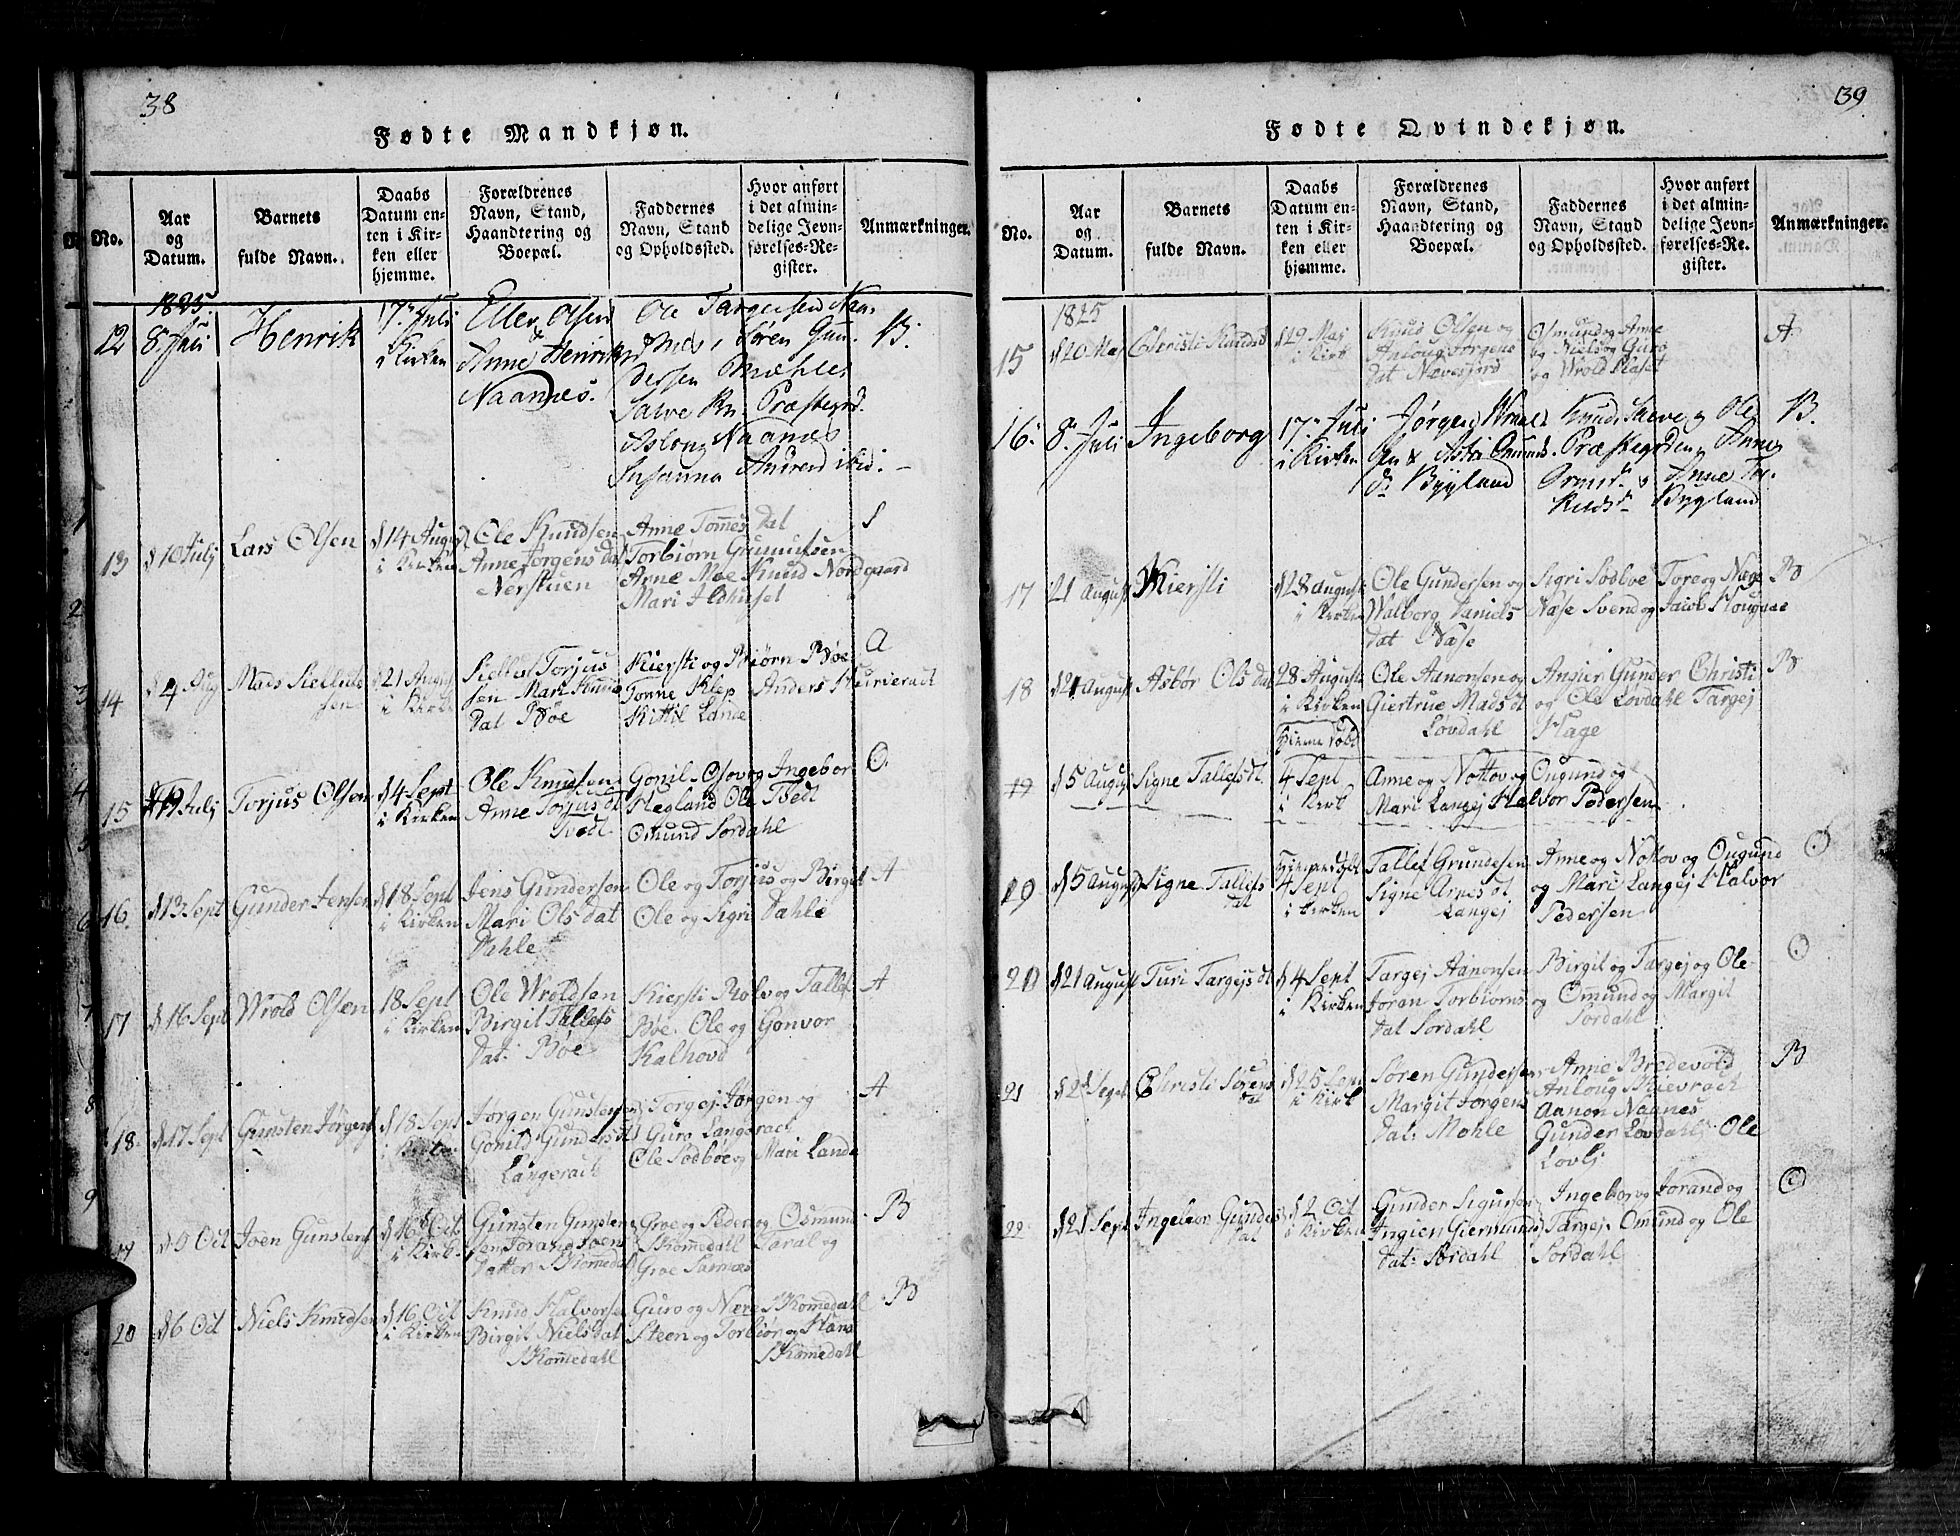 38
Fødte Mandkjøn.
No.
Aar
og
Datum.
Barnets
fulde Navn.
Daabs
Datum en-
ten i Kir-
ken eller
hjemme.
Forældrenes
Navn, Stand,
Haandtering og
Boepæl.
Faddernes
Navn, Stand
og Opholdssted.
Hvor anført
i det almin-
delige Jevn-
førelses-Re-
gister.
Anmærkninger.
1825.
12
8 Juli
Henrik
17 Juli
i Kirken
Ellev Olsen
&
Anne Henriks
Naandes.
Ole Targeisen Naa-
Søren Gun-
dersen Mæhle
Salve Kn. Præstegrd.
Aslong Naanes
Susanna ibid.
B.
13
d 10 Julj
Lars Olsen
d 14 August
i Kirken
Ole Knudsen
Anne Jørgens dat
Nerstuen
Anne Tomes dat
Torbiørn Gunnufsen
Arne Moe Knud Nordgaard
Mari Ildhuset
14
d 4 Aug
Mads Siellufs
sen
d 21 August
i Kirk
Torjus
sen Mari Knud
dat Bøe
Kiersti og Biørn Bøe
Tonne Klep Anders
Kittil Lande
A
15
19 Julj
Torjus Olsen
d 4 Sept
i Kirken
Ole Knudsen
Anne Torjus dt
Tvedt
Gonil Osov og Ingebor
Hegland Ole Tvedt
Omund Sordahl
O.
16.
d 13 Sept
Gunder Jensen
d 18 Sept
i Kirken
Jens Gundersen
Mari Ols dat
Dahle
Ole og Torjus og Birgit
Ole og Sigri Dahle
A
17
d 16 Sept
Wrold Olsen
18 Sept
i Kirken
Ole Wroldsen
Birgit Tallefs
dat: Bøe
Kiersti Rolv og Tallef
Bøe. Ole og Gonvor
Kalhovd
A
18.
d 17 Sept
Gunsten Jørgens
d 18 Sept
i Kirken
Jørgen Gunstens
Gonild Gunders dt
Langerach
Torgej Jørgen og
Guro Langerach
Ole Sodbøe og Mari Lande
A
19
d 5 Oct
Joen Gunstens
d 16 Oct
i Kirk.
Gunsten Gunsten
sen Jorand Joens
datter Skomedal
Groe og Peder og Osmund
Skomedall Taral og
Groe
B
20
d 6 Oct
Niels Knudsen
d 16 Oct
i Kirken
Knud Halvorsen
Birgit Nielsdat
Skomedall
Guro og Nære Skomedall
Steen og Torbiør og Hans
Skomedall
B
39
Fødte Qvindekjøn.
No.
Aar
og
Datum.
Barnets
fulde Navn.
Daabs
Datum en-
ten i Kir-
ken eller
hjemme.
Forældrenes
Navn, Stand,
Haandtering og
Boepæl.
Faddernes
Navn, Stand
og Opholdssted.
Hvor anført
i det almin-
delige Jevn-
førelses-Re-
gister.
Anmærkninger.
1825
15
d 20 Maj
Christi Knudsd
d 29 Maj
i Kirk
Knud Olsen og
Anloug Jørgens
dat Nævesfjord
Osmund og Anne
og Niels og Guro
og Wrold
A
16.
8. Juli
Ingeborg
17 Juli
i Kirken
Jørgen
Bygland
Knud Salve & Ole
Præstegrden, Anne
Bygland
B.
17
21 August
Kiersti
d 28 August
i Kirken
Ole Gundersen og
Walborg Daniels
dat Nase
Sigri Sodboe Tore og Næge
Nase Svend og Jacob
B
18
d 21 August
Asbør Ols dat
28 August
i Kirken
Ole Aanonsen og
Giertrue Mads dt
Løvdahl
Gunder Christi
og Ole Løvdahl Targej
Hage
B
19
d 5 August
Signe Tallefs dt
4 Sept
i Kirk
Anne og Nottov og Ougund og
Mari Langej Halvor Pedersen
29
d 5 August
Signe Tallefs
dat
Hjemmedøbt
4 Sept
i Kirken
Tallef Grundesen
Signe Arnes dt
Langej
Anne og Nottov og Ougund
og Mari Langej Halvor
Pedersen
O
20
d 21 August
Turi Targejs dt
d 4 Sept
i Kirken
Targej Aanonsen
Joran Torbiørns
dat Sordahl
Birgit og Targej og Ole
og Omund og Margit
Sordahl
O
21
d 2 Sept
Christi Sørens
dat
d 25 Sept
i Kirk
Søren Gundersen
Margit Jørgens
dat: Mohle
Anne Bredevold
Anloug
Aanon Naanes
Gunder Lovdahl. Ole
Lovlj
B
22
d 21 Sept
Ingebor Gunders
dat
d 2 Oct
i Kirken
Gunder Sigursen
Ingier Giermunds
dat: Sordahl
Ingebor og Jorand og
Targej. Omund og Ole
Sordahl
O